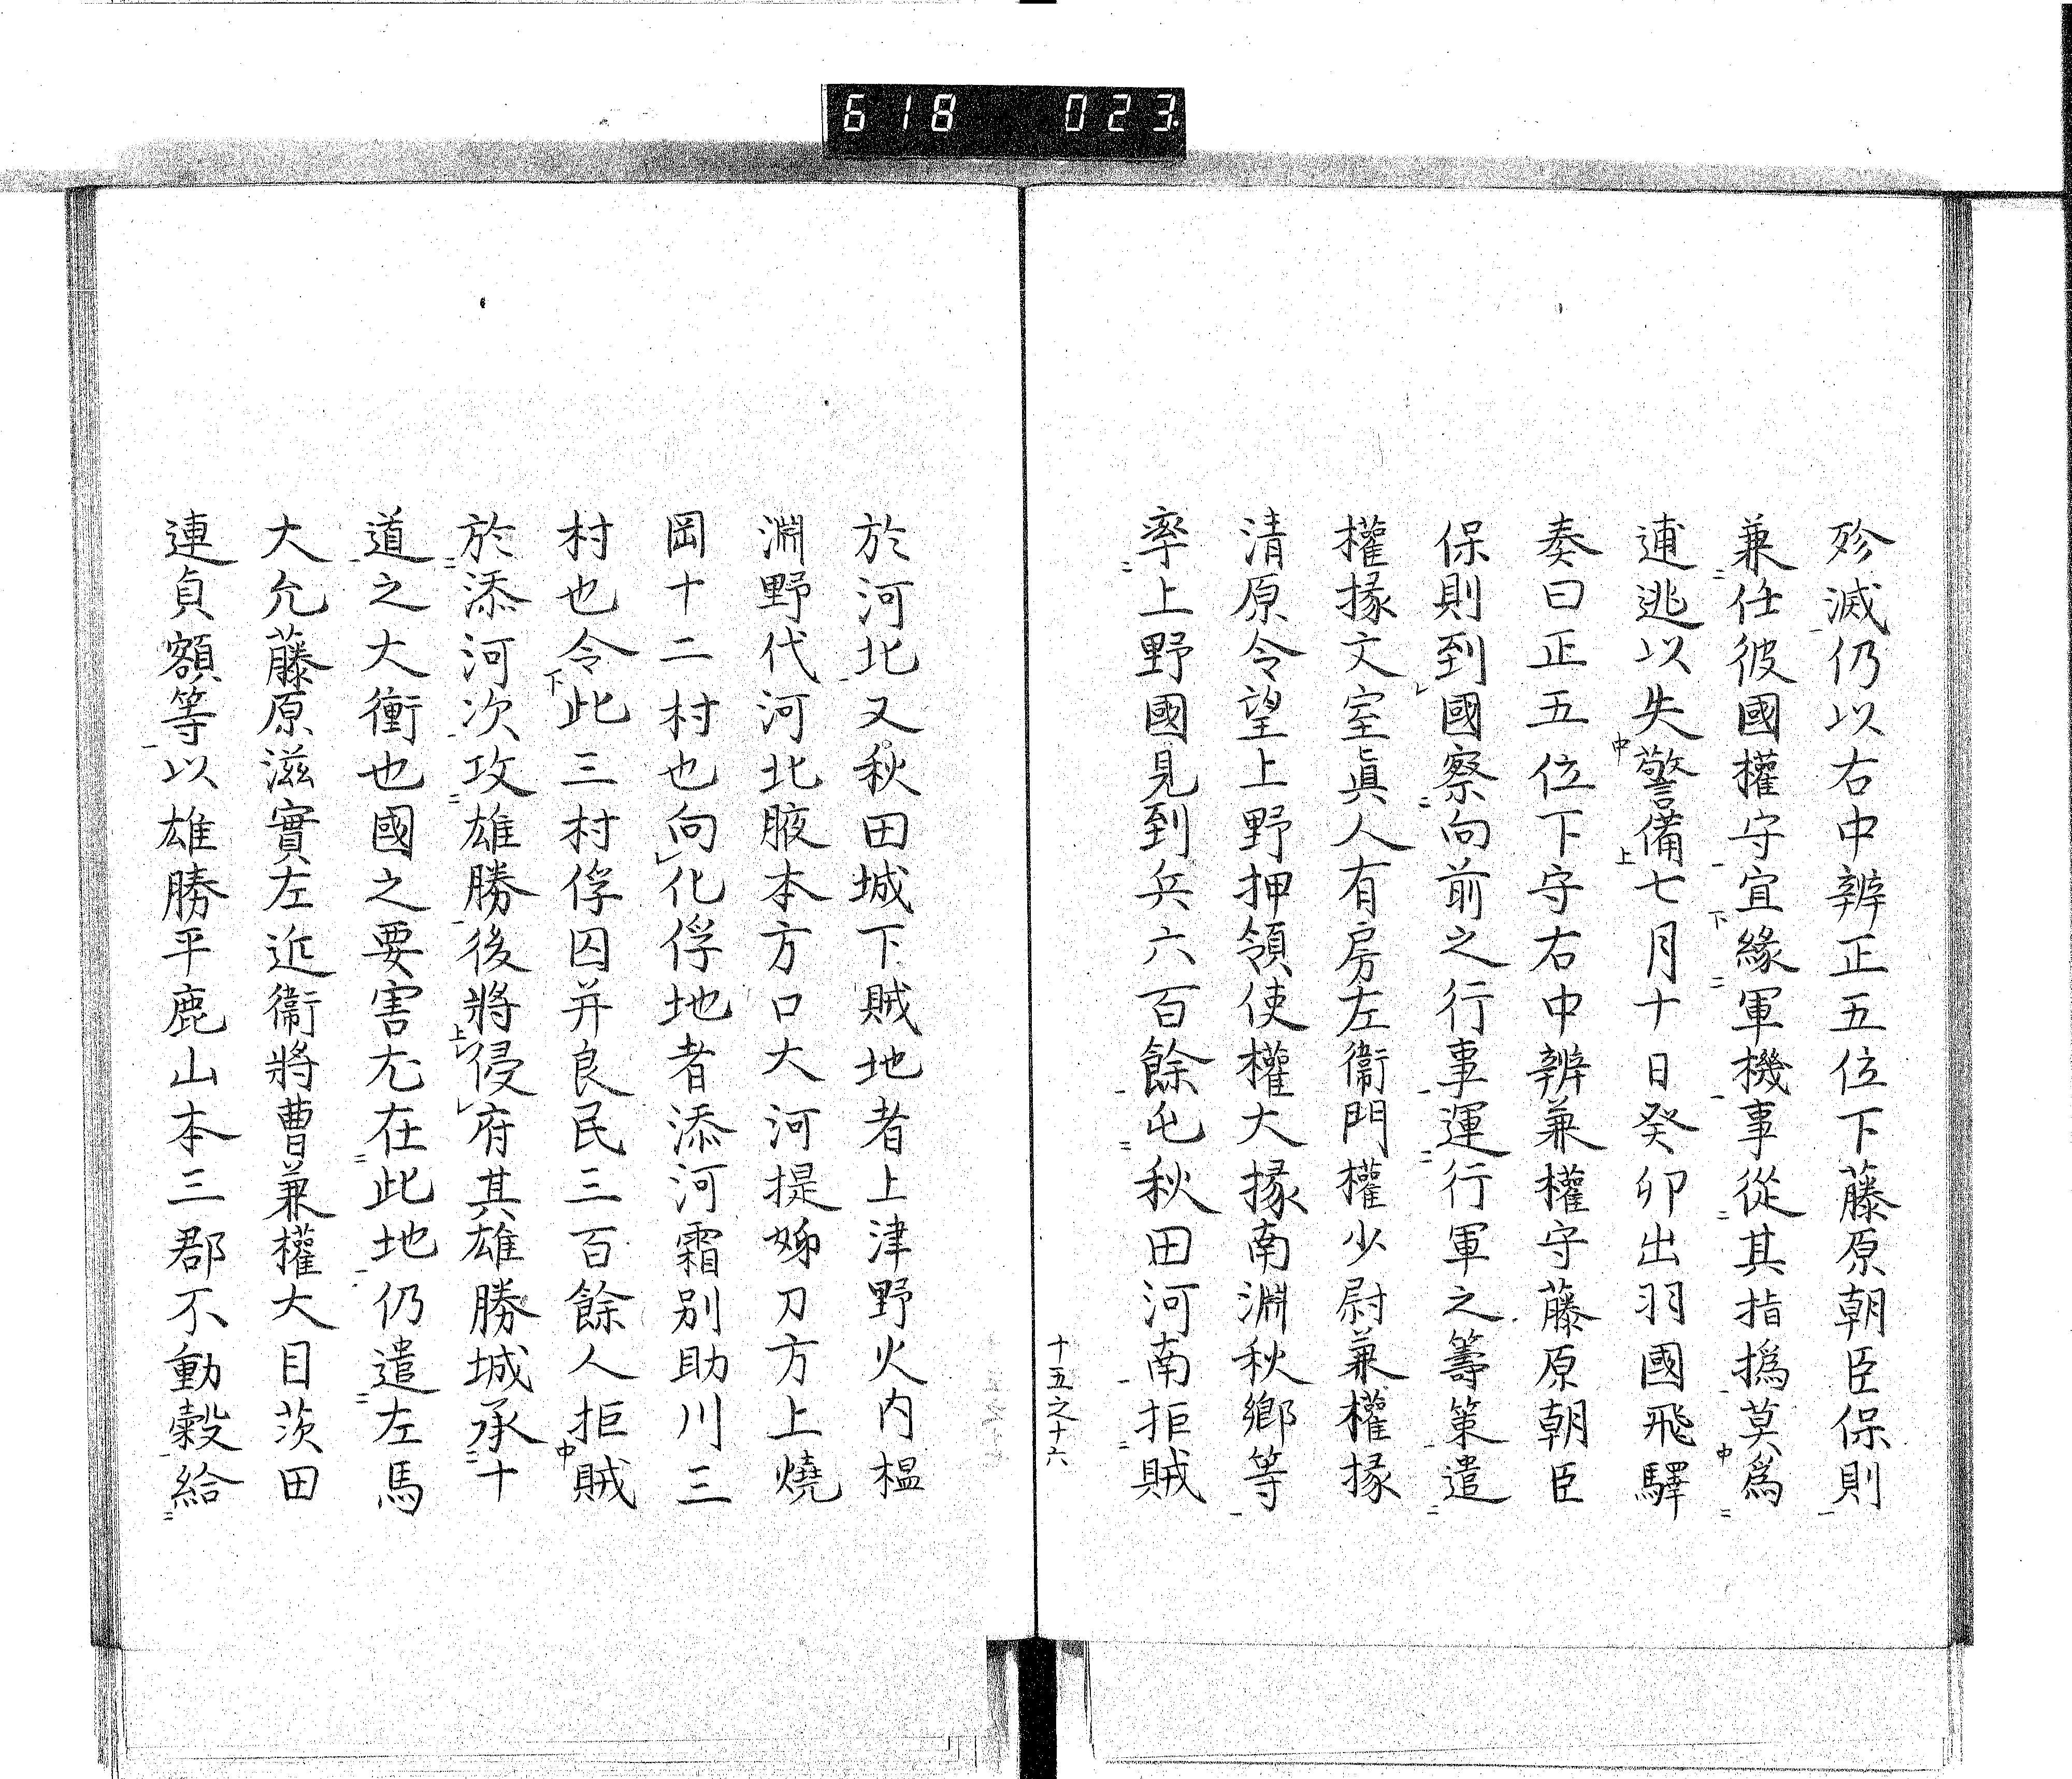 618 023
殄滅仍以右中辨正五位下藤原朝臣保則
兼任彼國權守宜緣軍機事從其指撝莫爲
逋逃以失警備七月十日癸卯出羽國飛驛
奏曰正五位下守右中辨兼權守藤原朝臣
保則到國察向前之行事運行軍之籌策遣
權掾文室眞人有房左衞門權少尉兼權掾
清原令望上野押領使權大掾南淵秋鄉等
率上野國見到兵六百餘屯秋田河南拒賊
十五之十六
於河北又秋田城下賊地者上津野火内榲
淵野代河北腋本方口大河提姊刀方上燒
岡十二村也向化俘地者添河霸别助川三
村也令此三村俘囚并良民三百餘人拒賊
於添河次攻雄勝後將侵府其雄勝城承十
道之大衝也國之要害尤在此地仍遣左馬
大允藤原滋實左近衞將曹兼權大目茨田
連貞額等以雄勝平鹿山本三郡不動穀給